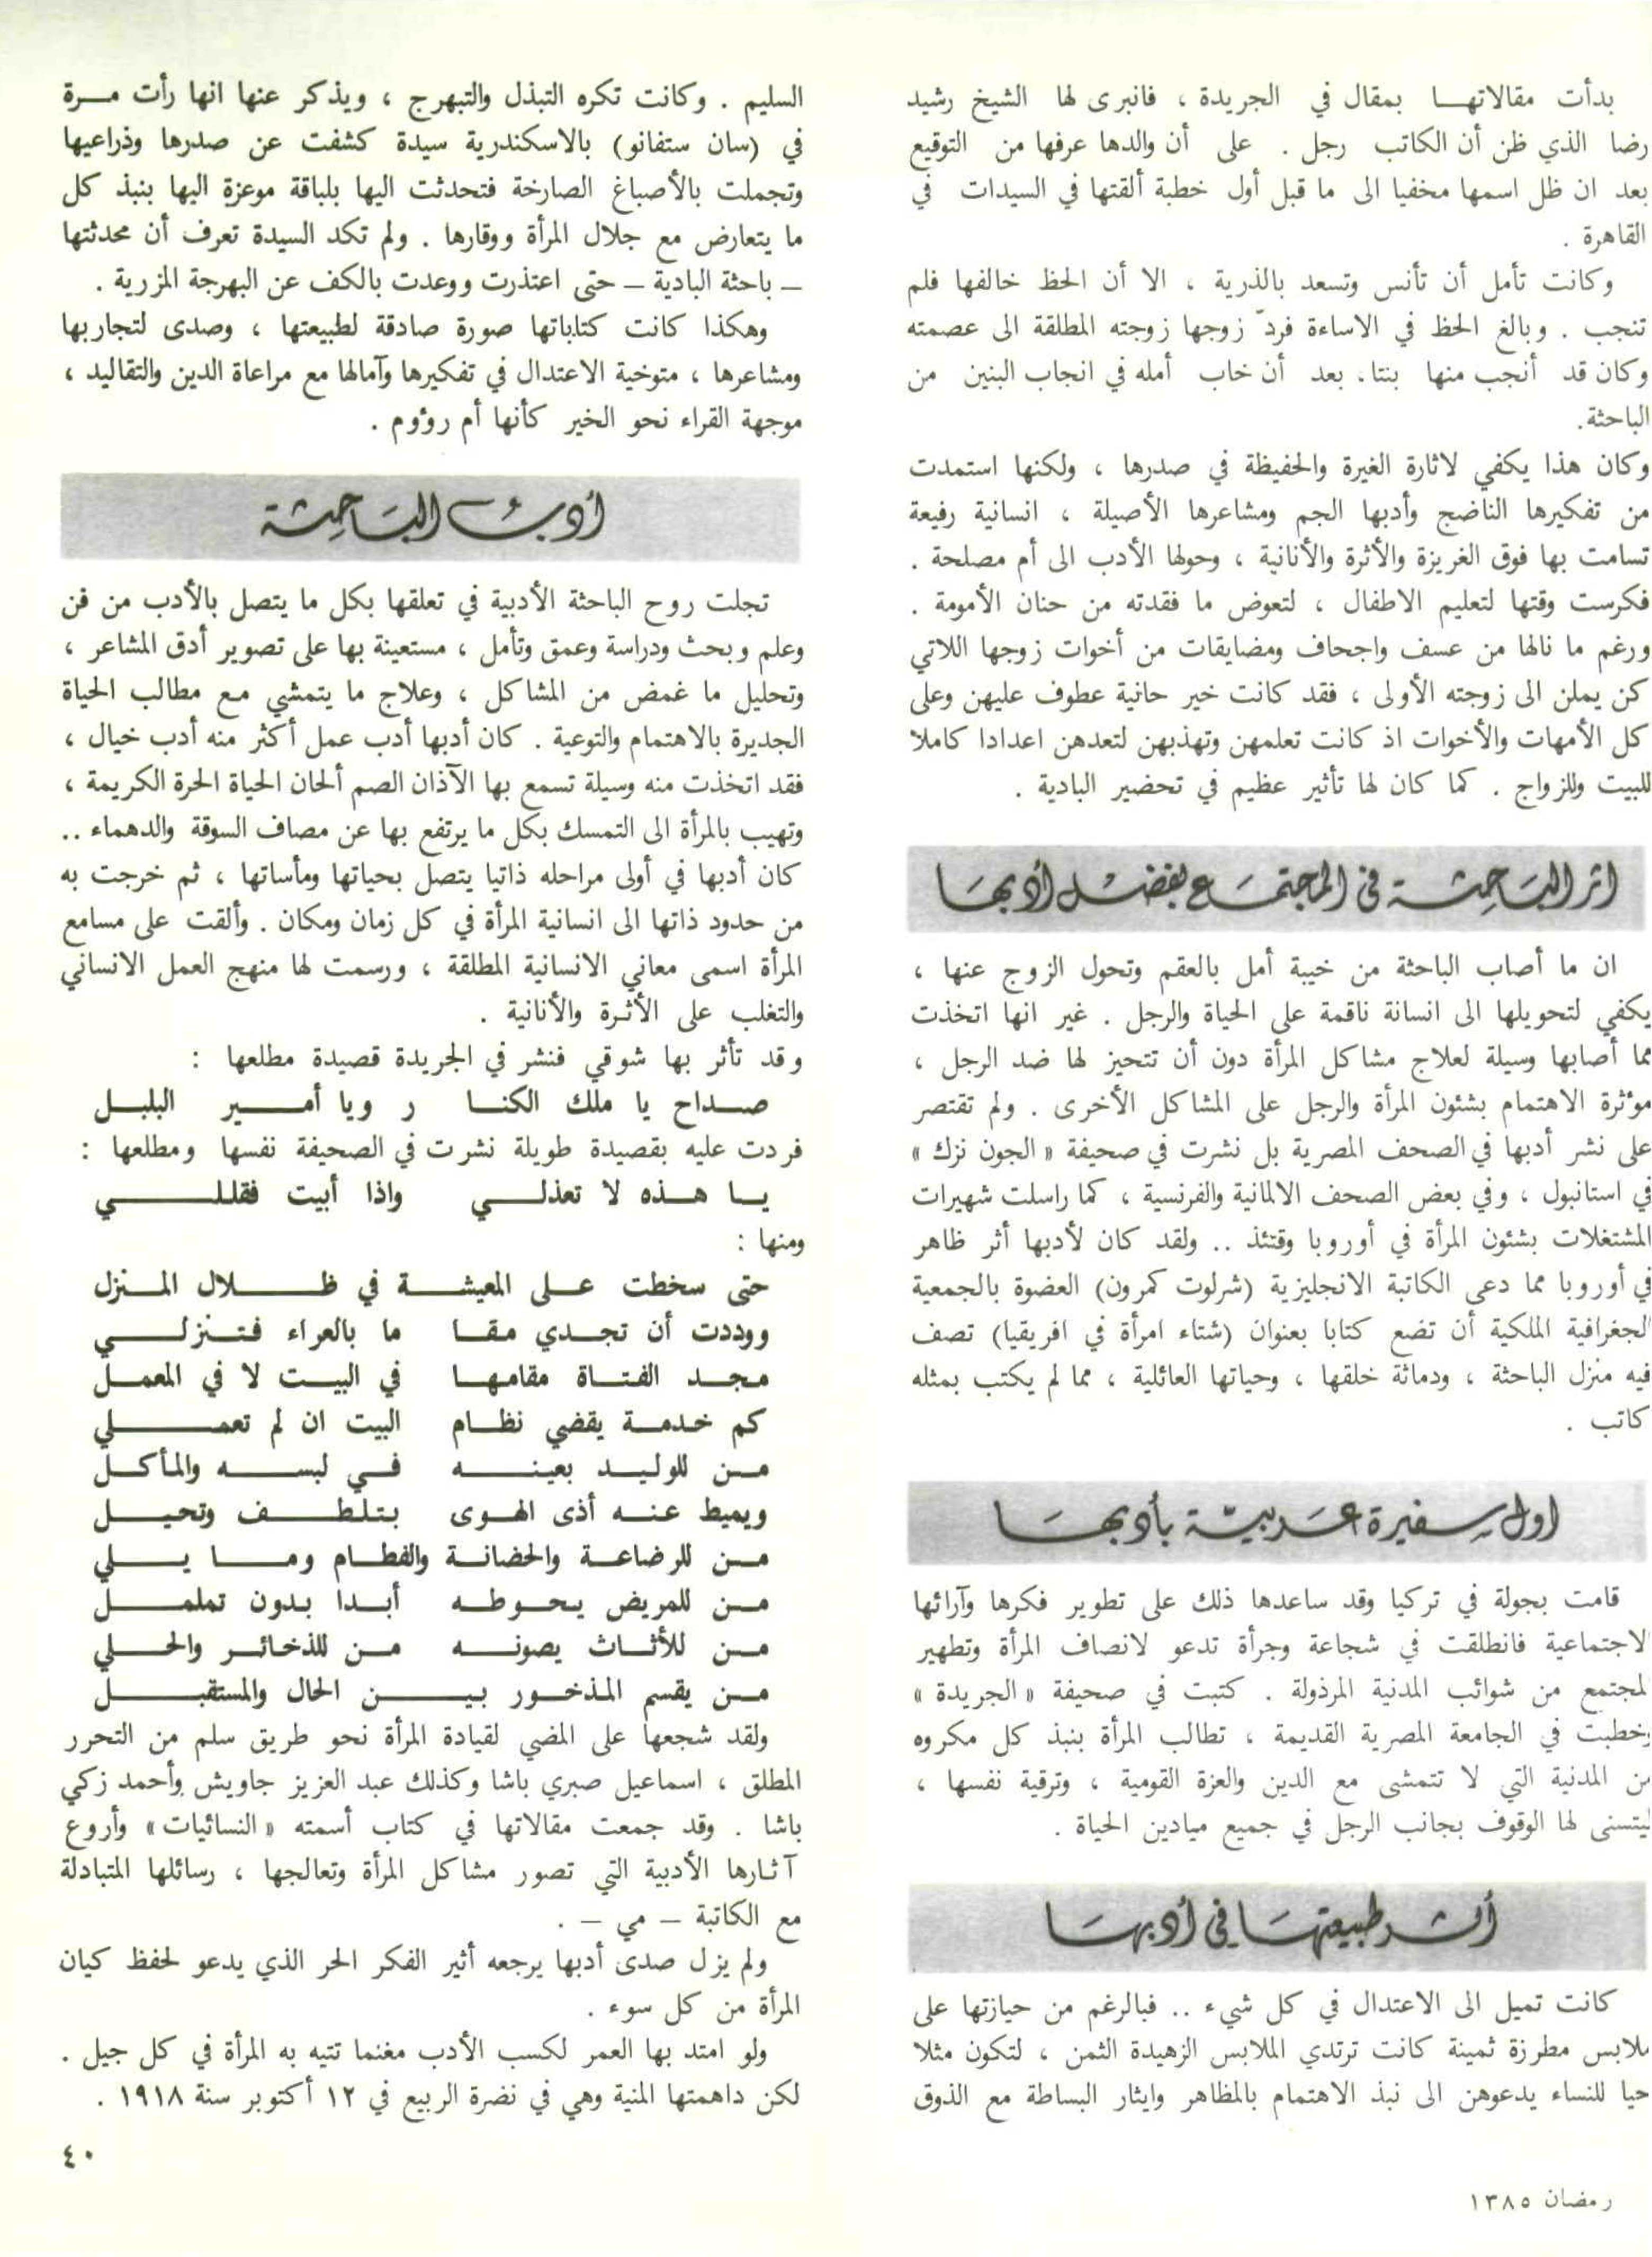 بدأت مقالاتهــا بمقال في الجريدة ، فانبرى لها الشيخ رشيد
رضا الذي ظن أن الكاتب رجل . على أن والدها عرفها من التوقيع
بعد ان ظل اسمها مخفيا الى ما قبل أول خطبة ألقتها في السيدات في
القاهرة .
وكانت تأمل أن تأنس وتسعد بالذرية ، الا أن الحظ خالفها فلم
تنجب . وبالغ الحظ في الاساءة فردّ زوجها زوجته المطلقة الى عصمته
وكان قد أنجب منها بنتا، بعد أن خاب أمله في انجاب البنين من
الباحثة.
وكان هذا يكفي لاثارة الغيرة والحفيظة في صدرها ، ولكنها استمدت
من تفكيرها الناضج وأدبها الجم ومشاعرها الأصيلة ، انسانية رفيعة
تسامت بها فوق الغريزة والأثرة والأنانية ، وحولها الأدب الى أم مصلحة .
فكرست وقتها لتعليم الاطفال ، لتعوض ما فقدته من حنان الأمومة .
ورغم ما نالها من عسف واجحاف ومضايقات من أخوات زوجها اللاتي
كن يملن الى زوجته الأولى ، فقد كانت خير حانية عطوف عليهن وعلى
كل الأمهات والأخوات اذ كانت تعلمهن وتهذبهن لتعدهن اعدادا كاملا
للبيت وللزواج . كما كان لها تأثير عظيم في تحضير البادية .
اثر الباحثة في المجتمع بفضل أدبها
ان ما أصاب الباحثة من خيبة أمل بالعقم وتحول الزوج عنها ،
يكفي لتحويلها الى انسانة ناقمة على الحياة والرجل . غير انها اتخذت
مما أصابها وسيلة لعلاج مشاكل المرأة دون أن تتحيز لها ضد الرجل ،
مؤثرة الاهتمام بشئون المرأة والرجل على المشاكل الأخرى . ولم تقتصر
على نشر أدبها في الصحف المصرية بل نشرت في صحيفة « الجون نزك »
في استانبول ، وفي بعض الصحف الالمانية والفرنسية ، كما راسلت شهيرات
المشتغلات بشئون المرأة في أوروبا وقتئذ .. ولقد كان لأدبها أثر ظاهر
في أوروبا مما دعى الكاتبة الانجليزية (شرلوت كمرون) العضوة بالجمعية
الجغرافية الملكية أن تضع كتابا بعنوان (شتاء امرأة في افريقيا) تصف
فيه منزل الباحثة ، ودماثة خلقها ، وحياتها العائلية ، مما لم يكتب بمثله
كاتب .
اول سفيرة عربيّة بأدبها
قامت بجولة في تركيا وقد ساعدها ذلك على تطوير فكرها وآرائها
الاجتماعية فانطلقت في شجاعة وجرأة تدعو لانصاف المرأة وتطهير
المجتمع من شوائب المدنية المرذولة . كتبت في صحيفة « الجريدة »
وخطبت في الجامعة المصرية القديمة ، تطالب المرأة بنبذ كل مكروه
من المدنية التي لا تتمشى مع الدين والعزة القومية ، وترقية نفسها ،
ليتسنى لها الوقوف بجانب الرجل في جميع ميادين الحياة .
أثر طبيعتها في أدبها
كانت تميل الى الاعتدال في كل شيء .. فبالرغم من حيازتها على
ملابس مطرزة ثمينة كانت ترتدي الملابس الزهيدة الثمن ، لتكون مثلا
حيا للنساء يدعوهن الى نبذ الاهتمام بالمظاهر وايثار البساطة مع الذوق
السليم . وكانت تكره التبذل والتبهرج ، ويذكر عنها انها رأت مــرة
في (سان ستفانو) بالاسكندرية سيدة كشفت عن صدرها وذراعيها
وتجملت بالأصباغ الصارخة فتحدثت اليها بلباقة موعزة اليها بنبذ كل
ما يتعارض مع جلال المرأة ووقارها . ولم تكد السيدة تعرف أن محدثتها
– باحثة البادية – حتى اعتذرت ووعدت بالكف عن البهرجة المزرية .
وهكذا كانت كتاباتها صورة صادقة لطبيعتها ، وصدى لتجاربها
ومشاعرها ، متوخية الاعتدال في تفكيرها وآمالها مع مراعاة الدين والتقاليد ،
موجهة القراء نحو الخير كأنها أم رؤوم .
أدب الباحثة
تجلت روح الباحثة الأدبية في تعلقها بكل ما يتصل بالأدب من فن
وعلم وبحث ودراسة وعمق وتأمل ، مستعينة بها على تصوير أدق المشاعر ،
وتحليل ما غمض من المشاكل ، وعلاج ما يتمشي مع مطالب الحياة
الجديرة بالاهتمام والتوعية . كان أدبها أدب عمل أكثر منه أدب خيال ،
فقد اتخذت منه وسيلة تسمع بها الآذان الصم ألحان الحياة الحرة الكريمة ،
وتهيب بالمرأة الى التمسك بكل ما يرتفع بها عن مصاف السوقة والدهماء ..
كان أدبها في أولى مراحله ذاتيا يتصل بحياتها ومأساتها ، ثم خرجت به
من حدود ذاتها الى انسانية المرأة في كل زمان ومكان . وألقت على مسامع
المرأة اسمى معاني الانسانية المطلقة ، ورسمت لها منهج العمل الانساني
والتغلب على الأثرة والأنانية .
وقد تأثر بها شوقي فنشر في الجريدة قصيدة مطلعها :
صــداح يا ملك الكنــا ر ويا أمــير البلبــل
فردت عليه بقصيدة طويلة نشرت في الصحيفة نفسها ومطلعها :
يــا هــذه لا تعذلــي واذا أبيت فقللــي
ومنها :
حتى سخطت علــى المعيشــة في ظــلال المنــزل
ووددت أن تجــدي مقــا ما بالعراء فــتنزلــي
مجــد الفتــاة مقامهــا في البيــت لا في المعمــل
كم خدمــة يقضي نظــام البيت ان لم تعمــلي
مــن للوليــد بعينــه فــي لبســه والمأكــل
ويميط عنــه أذى الهــوى بتلطــف وتحيــل
مــن للرضاعــة والحضانــة والفطــام ومــا يــلي
مــن للمريض يحــوطــه أبــدا بــدون تململــل
مــن للأثــاث يصونــه مــن للذخائــر والحــلي
مــن يقسم المذخــور بيــن الحال والمستقبــل
ولقد شجعها على المضي لقيادة المرأة نحو طريق سلم من التحرر
المطلق ، اسماعيل صبري باشا وكذلك عبد العزيز جاويش وأحمد زكي
باشا . وقد جمعت مقالاتها في كتاب أسمته « النسائيات » وأروع
آثارها الأدبية التي تصور مشاكل المرأة وتعالجها ، رسائلها المتبادلة
مع الكاتبة – مي – .
ولم يزل صدى أدبها يرجعه أثير الفكر الحر الذي يدعو لحفظ كيان
المرأة من كل سوء .
ولو امتد بها العمر لكسب الأدب مغنما تتيه به المرأة في كل جيل .
لكن داهمتها المنية وهي في نضرة الربيع في ١٢ أكتوبر سنة ١٩١٨ .
٤٠
رمضان ١٣٨٥